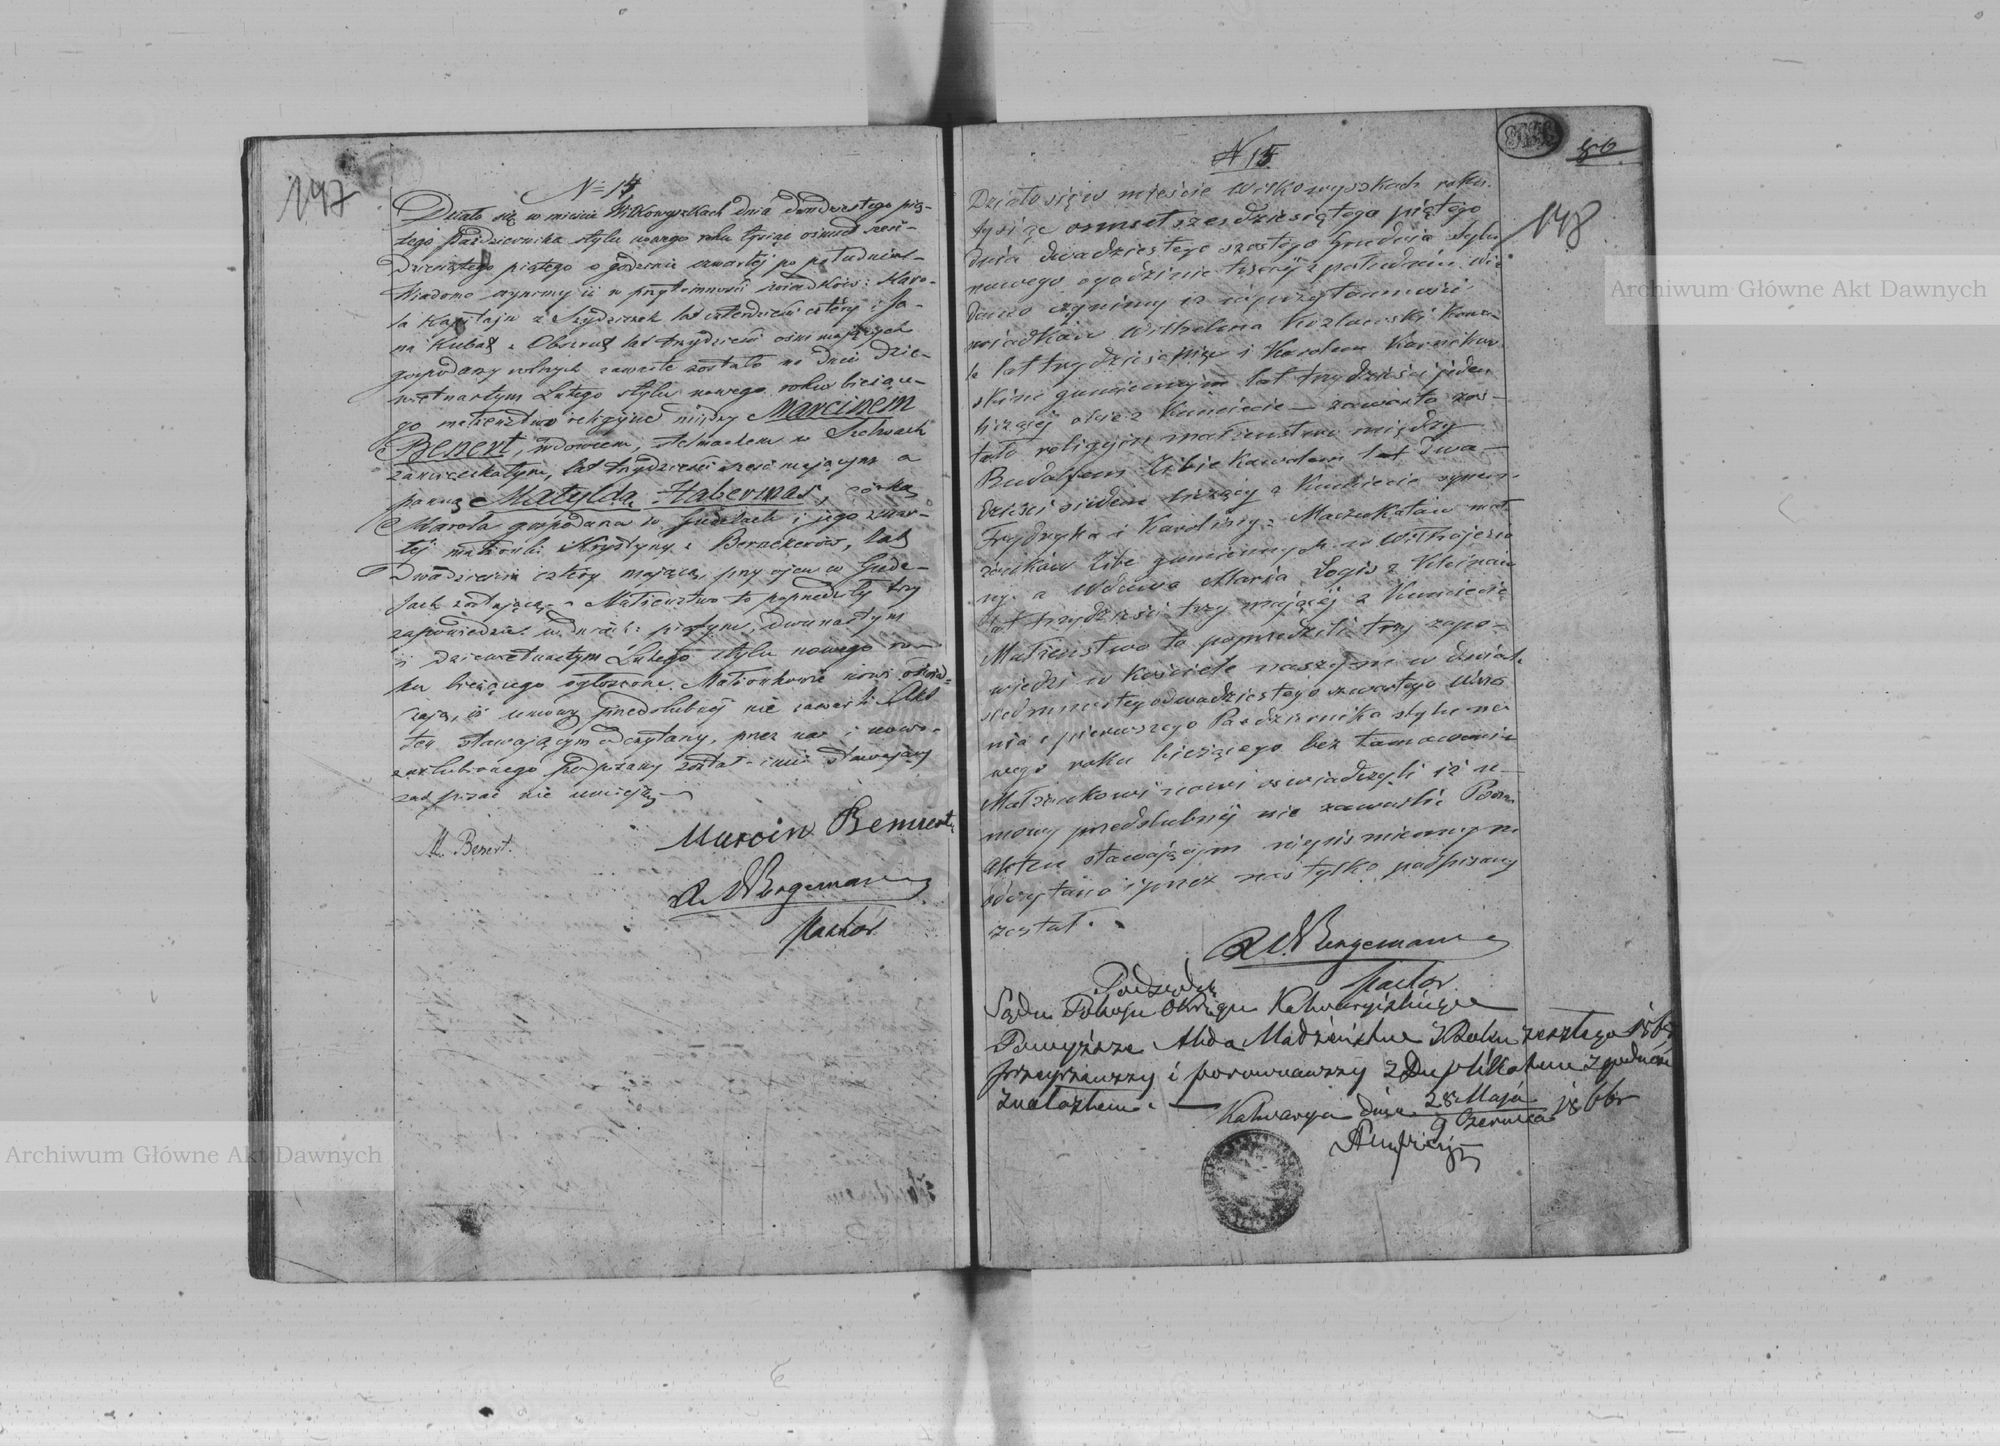 147
N=14
Działo się w mieście Wiłkowyszkach dnia dwudziestego pią-
tego Października stylu nowego roku tysiąc ośmset sześć-
dziesiątego piątego o godzinie czwartej po południu.
Wiadomo czynimy iż w przytomności świadków: Karo-
la Kapitajn z Szydziszek lat czterdzieści cztery i Ja-
na Kubat z Obszrut lat trzydzieści ośm mających
gospodarzy rolnych zawarte zostało na dniu dzie-
więtnastym Lutego stylu nowego roku bieżące-
go małżeństwo religijne między Marcinem
Benert, wdowcem, stelmachem w
zamieszkałym, lat trzydzieści sześć mającym a
panną Matyldą Habermas, córką
Karola gospodarza w Gudelach i jego zmar-
łej małżonki Krystyny z Bernekerów, lat
dwadzieścia cztery mającą, przy ojcu w Gude-
lach zostającą. Małżeństwo to poprzedziły trzy
zapowiedzie w dniach: piątym, dwunastym
i dziewiętnastym Lutego stylu nowego ro-
ku bieżącego ogłoszone. Małżonkowie nowi oświad-
czają, iż umowy przedślubnej nie zawarli. Akt
ten stawającym odczytany, przez nas i nowo-
zaślubionego podpisany został inni stawający
zaś pisać nie umieją.
M. Benert.
Marcin Bennert
R. Bergemann
pastor
86
148
N 15
Działo się w mieście Wiłkowyszkach roku
tysiąc osmset szesdziesiątego piątego
dnia dwadziestego szostego Grudnia stylu
nowego o godzinie trzeciej z południa. Wia
domo czynimy iż w przytomności
swiadków Wilhelma Kozłowski
lat trzydziesci i Karolem
skim gumiennym lat trzydziesci jeden
liczącej obie z Kunicicie zawarte zos-
tało religijne małżenstwo między
Rudolfem kawalem lat dwa-
dziesci siedem liczący z Kunicicie synem
Frydryka i Karoliny z Maczukatów mał
żonków Zibe gumiennych w
ny. a Wdową Maria Logis z Kleinów
lat trzydziesci trzy mającej z Kunicicie
Małżenstwo to poprzedzili trzy zapo-
wiedzi w Kosciele naszym w dniach
siedmnastego dwadziestego czwartego Wrzes
nia i pierwszego Pazdziernika stylu no
wego roku bieżącego bez tamowania
Małżonkowi nowi oswiadczyli iż u-
mowy przedslubnej nie zawarli.
aktu stawającym niepismiennym
odczytano i przez nas tylko podpisany
został.
R. Bergemann
pastor
Podsędek
Sądu Pokoju Okręgu Kalwaryjskiego
Powyższe Akta Małżeńskie z Roku zeszłego 1865
przejrzawszy i porównawszy z Duplikatem zgodnemi
znalazłem.
Kalwarya dnia 28 Maja
9 Czerwca 1866r
Archiwum Główne Akt Dawnych
Archiwum Główne Akt Dawnych